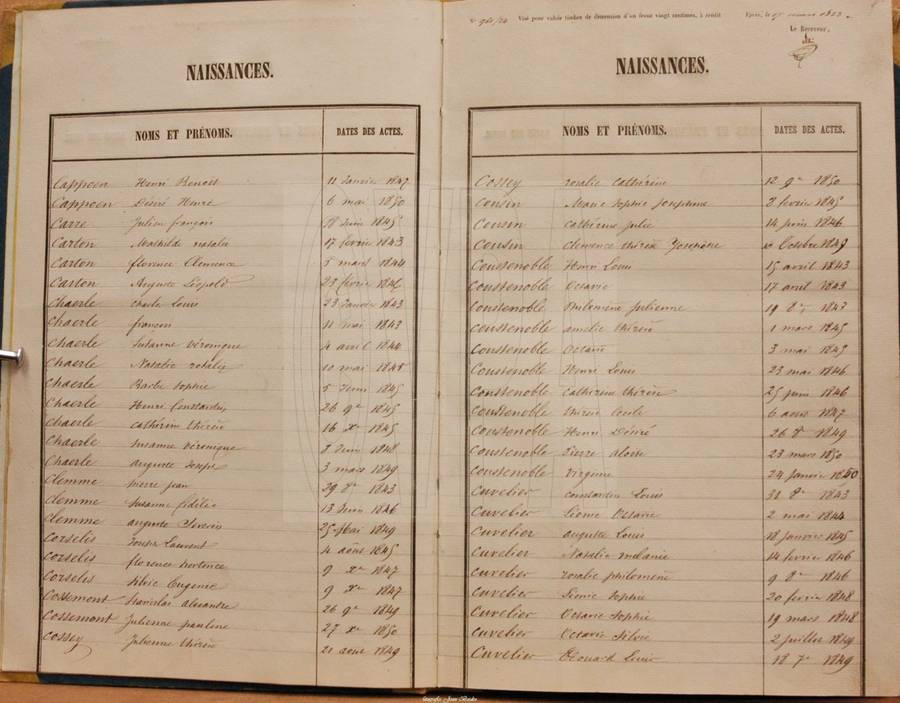 NAISSANCES.
NOMS ET PRÉNOMS. DATES DES ACTES.
Cappoen Henri Benoit 11 Janvier 1847
Cappoen Désiré Henri 6 mai 1850
Carre Julien françois 18 Juin 1845
Carton Mathilde natalie 17 fevrier 1843
Carton florence Clemence 5 mars 1844
Carton Auguste Léopold 23 fevrier 1846
Chaerle charle Louis 23 Janvier 1843
Chaerle françois 11 mai 1843
Chaerle Susanne véronique 4 avril 1844
Chaerle Natalie 10 mai 1845
Chaerle Barbe Sophie 5 1845
Chaerle Henri Constantin 26 9e 1845
Chaerle cathérine thérèse 16 Xe 1845
Chaerle Susanne véronique 1848
Chaerle auguste Joseph 3 mars 1849
Clemme pierre jean 29 8e 1843
Clemme Susanne fidélie 13 Juin 1846
Clemme auguste Séverin 25 Mai 1849
Corselis Joseph Laurent 4 août 1845
Corselis florence hortence 9 Xe 1847
Corselis Silvie Eugenie 9 Xe 1847
Cossemont Stanislas alexandre 26 9e 1849
Cossemont Julienne pauline 27 Xe 1850
Cossey Julienne thérèse 21 aout 1849
Visé pour valoir timbre de dimension d'un franc vingt centimes, à crédit Ypres, le
Le Receveur,
NAISSANCES.
NOMS ET PRÉNOMS. DATES DES ACTES.
Cossey rosalie cathérine 12 9e 1850
Cousin Marie Sophie Josephine 2 fevrier 1845
Cousin cathérine julie 14 juin 1846
Cousin clemence thérèse Josephine Octobre 1849
Coustenoble Henri Louis 15 avril 1843
Coustenoble Octavie 17 avril 1843
Coustenoble philomène Julienne 19 8e 1843
Coustenoble amélie thérèse 1 mars 1845
Coustenoble Octavie 3 mai 1845
Coustenoble Henri Louis 23 mai 1846
Coustenoble cathérine thérèse 25 juin 1846
Coustenoble thérèse Cecile 6 aout 1847
Coustenoble Henri Désiré 26 8e 1849
Coustenoble pierre aloise 23 mars 1850
Coustenoble virginie 24 Janvier 1850
Cuvelier constantin Louis 31 8e 1843
Cuvelier Léonie Octavie 2 mai 1844
Cuvelier auguste Louis 18 janvier 1845
Cuvelier Natalie mélanie 14 fevrier 1846
Cuvelier rosalie philomène 9 8e 1846
Cuvelier Léonie Sophie 20 fevrier 1848
Cuvelier Octavie Sophie 19 mars 1848
Cuvelier Octavie Silvie 2 juillet 1849
Cuvelier Edouard Louis 18 7e 1849